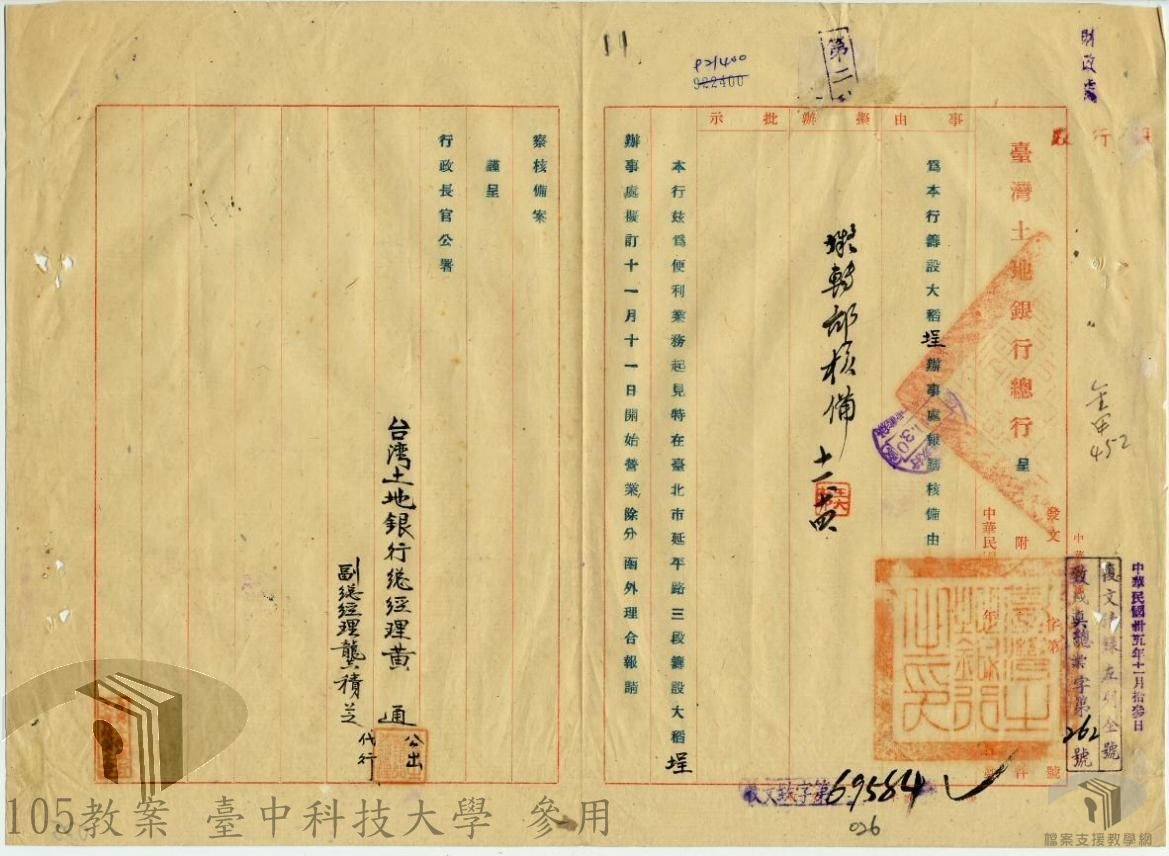 財政處
第二
P21400
922400
11
臺灣土地銀行總行 呈
事由 擬辦 批示
發文
字第
號
附
件
中華民國
年
中華民國卅五年十一月拾參日
復文
號
總業字第262號
金
452
為本行籌設大稻埕辦事處報請核備由
擬轉部核備
十一、十四
本行茲為便利業務起見特在臺北市延平路三段籌設大稻埕
辦事處擬訂十一月十一日開始營業除分函外理合報請
察核備案
謹呈
行政長官公署
台湾土地銀行総経理黃 通 公出
副総経理龔積芝 代行
臺灣土地銀行之印
收文 字第69584
026
105教案 臺中科技大學 參用
檔案支援教學網